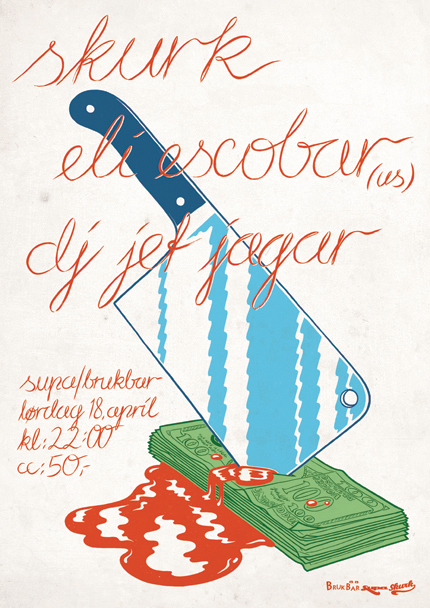 skurk
eli escobar (us)
dj jet jagar
supa/brukbar
lørdag 18, april
kl: 22:00
cc: 50,-
100
BRUKBAR skurk